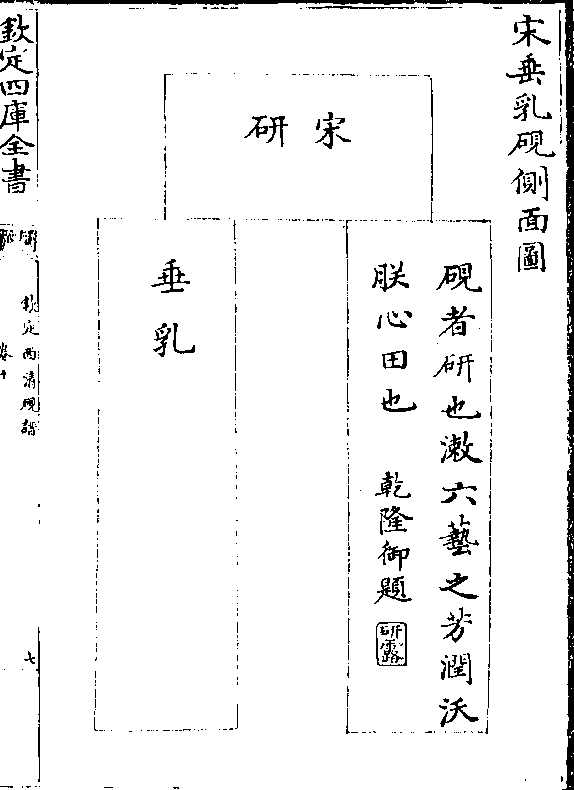 宋垂乳硯側面圖
宋研
硯者研也漱六藝之芳潤沃
朕心田也 乾隆御題
研露
垂乳
欽定四庫全書
欽定西清硯譜
卷十
七